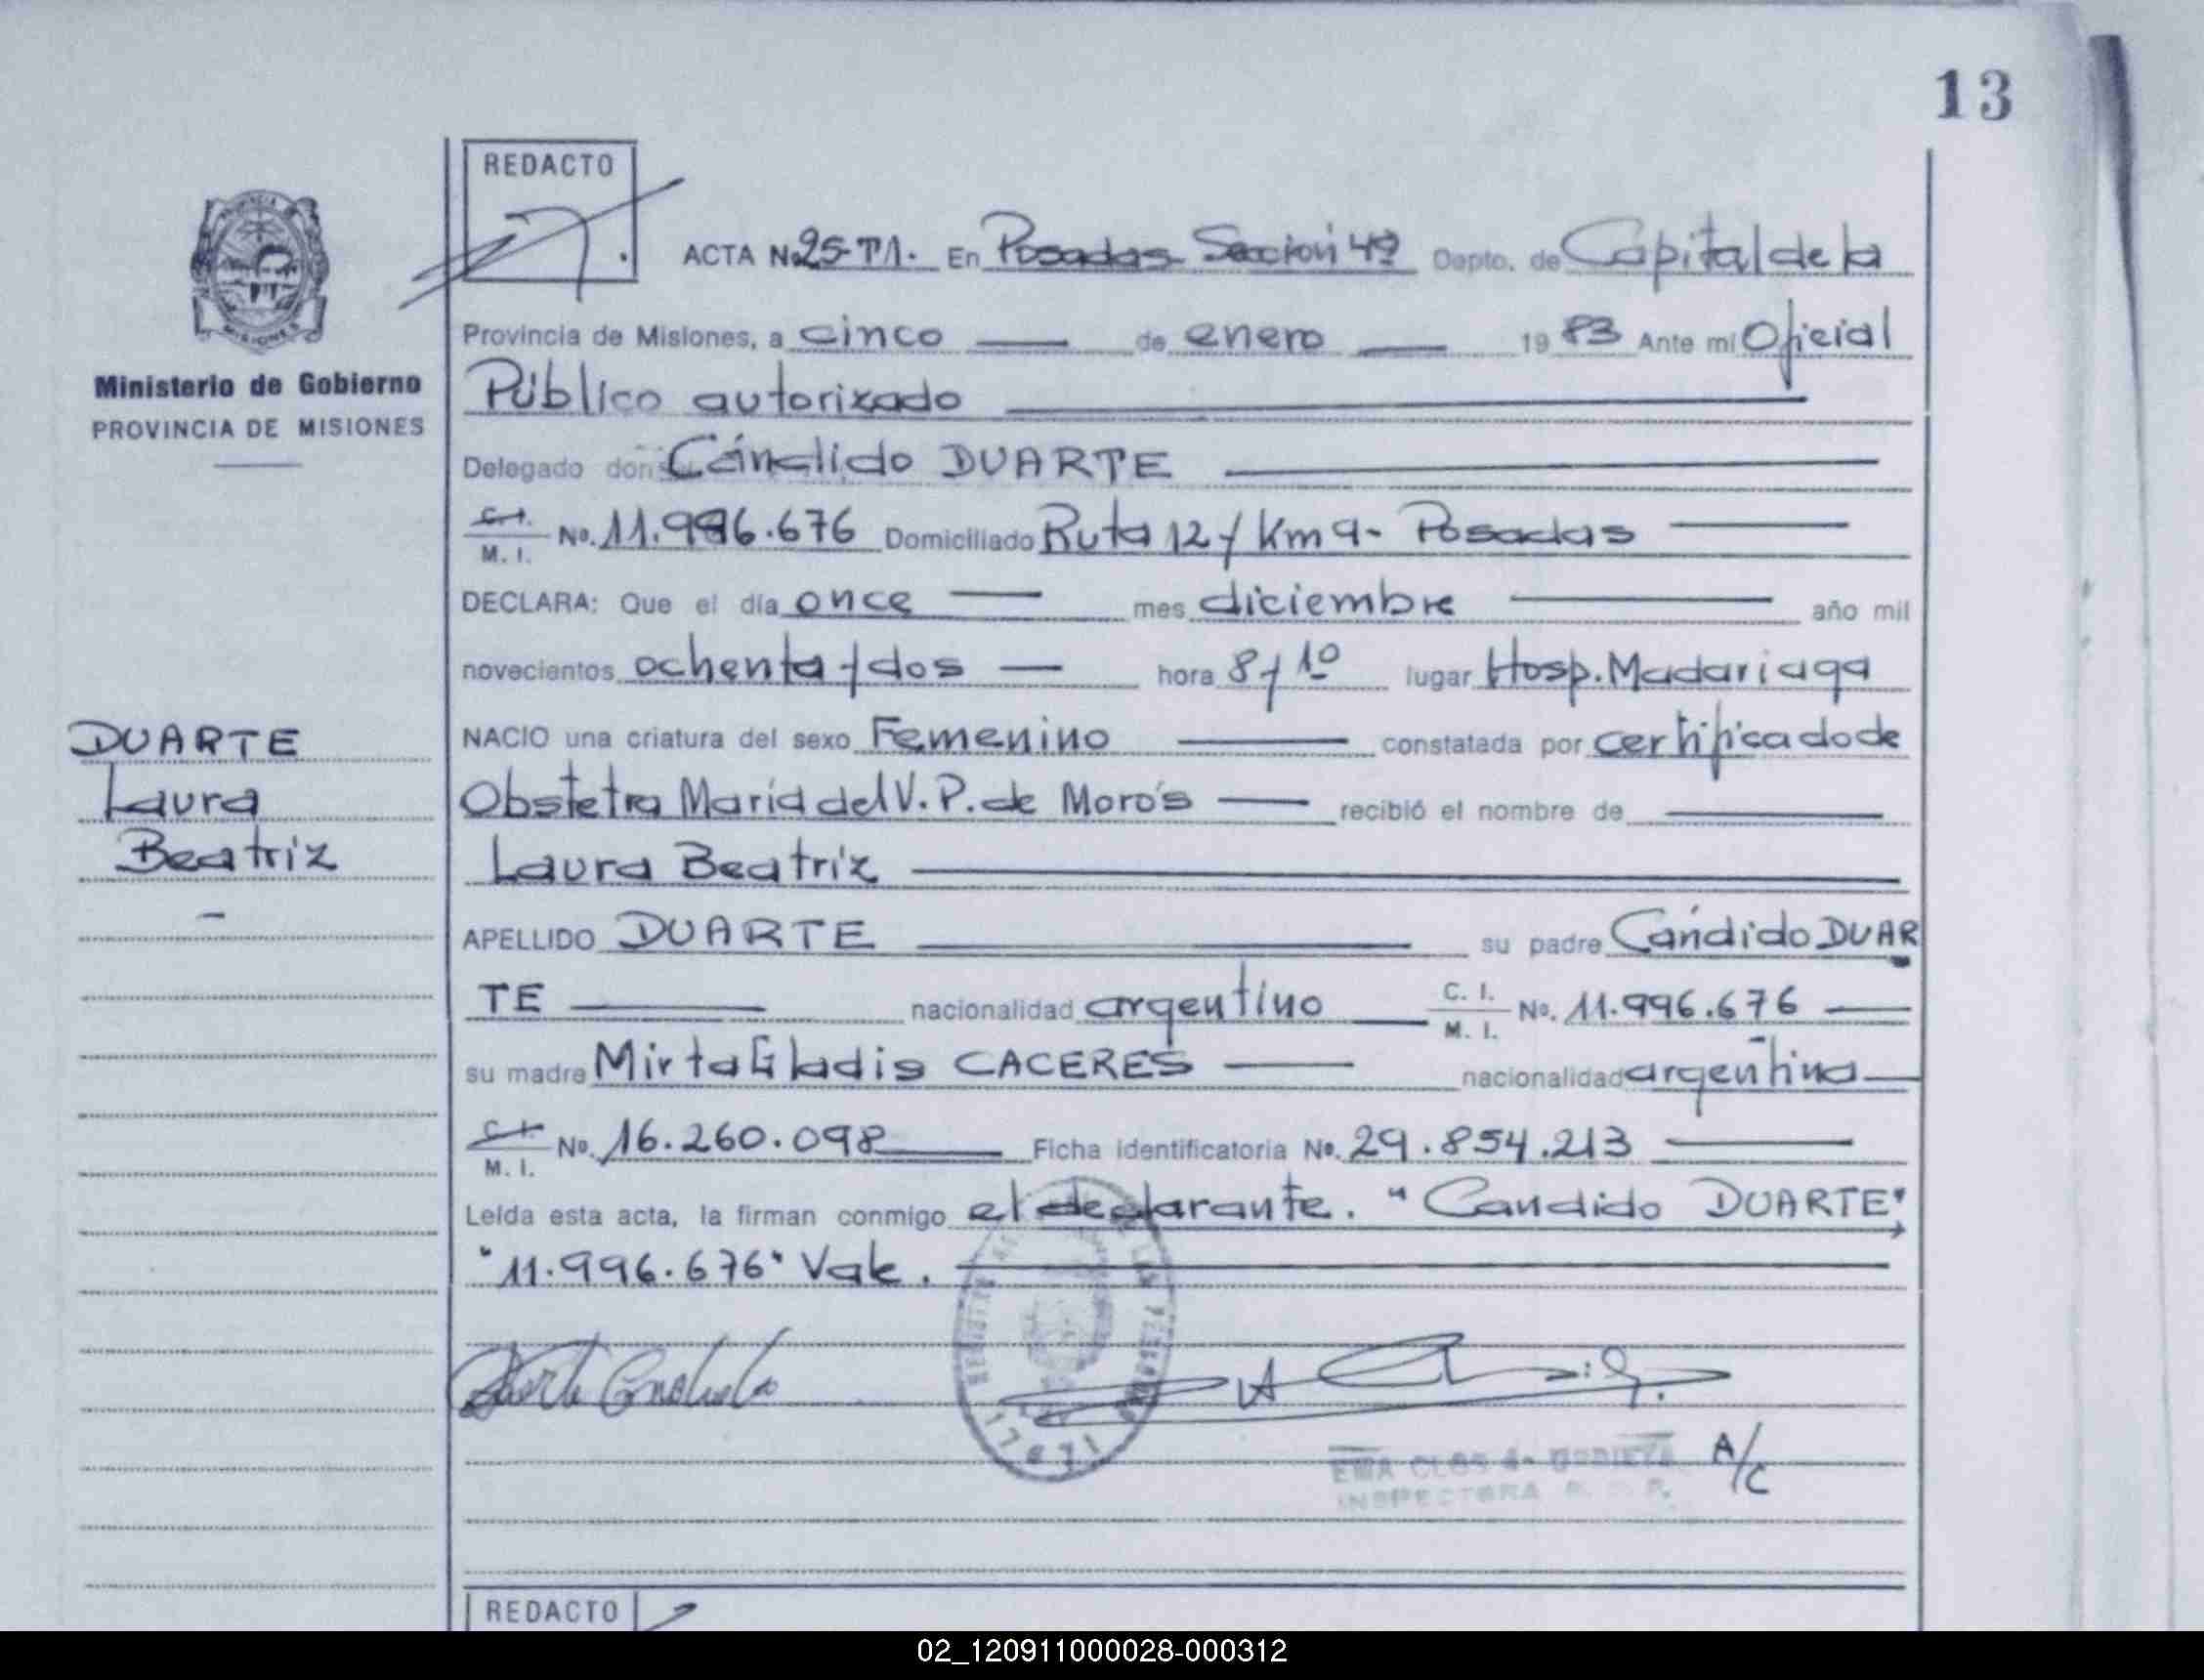 13
REDACTO
ACTA No 25-T1. En Posadas Sección 4ª Depto. de Capital de la
Provincia de Misiones, a cinco de enero 19 83 Ante mi Oficial
Público autorizado
Delegado don Cándido DUARTE
C. I. M. I. No. 11.996.676 Domiciliado Ruta 12 y Km 9- Posadas
DECLARA: Que el día once mes diciembre año mil
novecientos ochenta y dos hora 8 y 10 lugar Hosp. Madariaga
NACIO una criatura del sexo Femenino constatada por certificado de
Obstetra María del V. P. de Morós recibió el nombre de
Laura Beatriz
APELLIDO DUARTE su padre Cándido DUAR
TE nacionalidad argentino C. I. M. I. No. 11.996.676
su madre Mirta Gladis CACERES nacionalidad argentina
C. I. M. I. No. 16.260.098 Ficha identificatoria No. 29.854.213
Leída esta acta, la firman conmigo el declarante. "Candido DUARTE"
"11.996.676" Vale.
A/C
INSPECTORA
REDACTO
Ministerio de Gobierno
PROVINCIA DE MISIONES
DUARTE
Laura
Beatriz
02_120911000028-000312